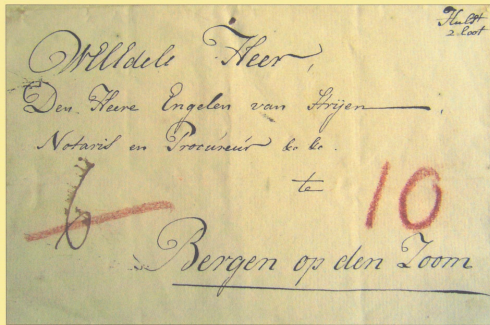 Hulst
2 loot
WelEdele Heer,
Den Heere Engelen van Strijen
Notaris en Procureur &c &c.
te
6
10
Bergen op den Zoom